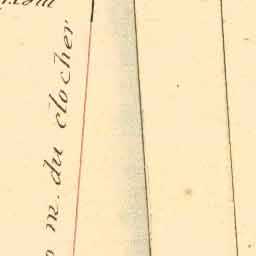 m. du clocher